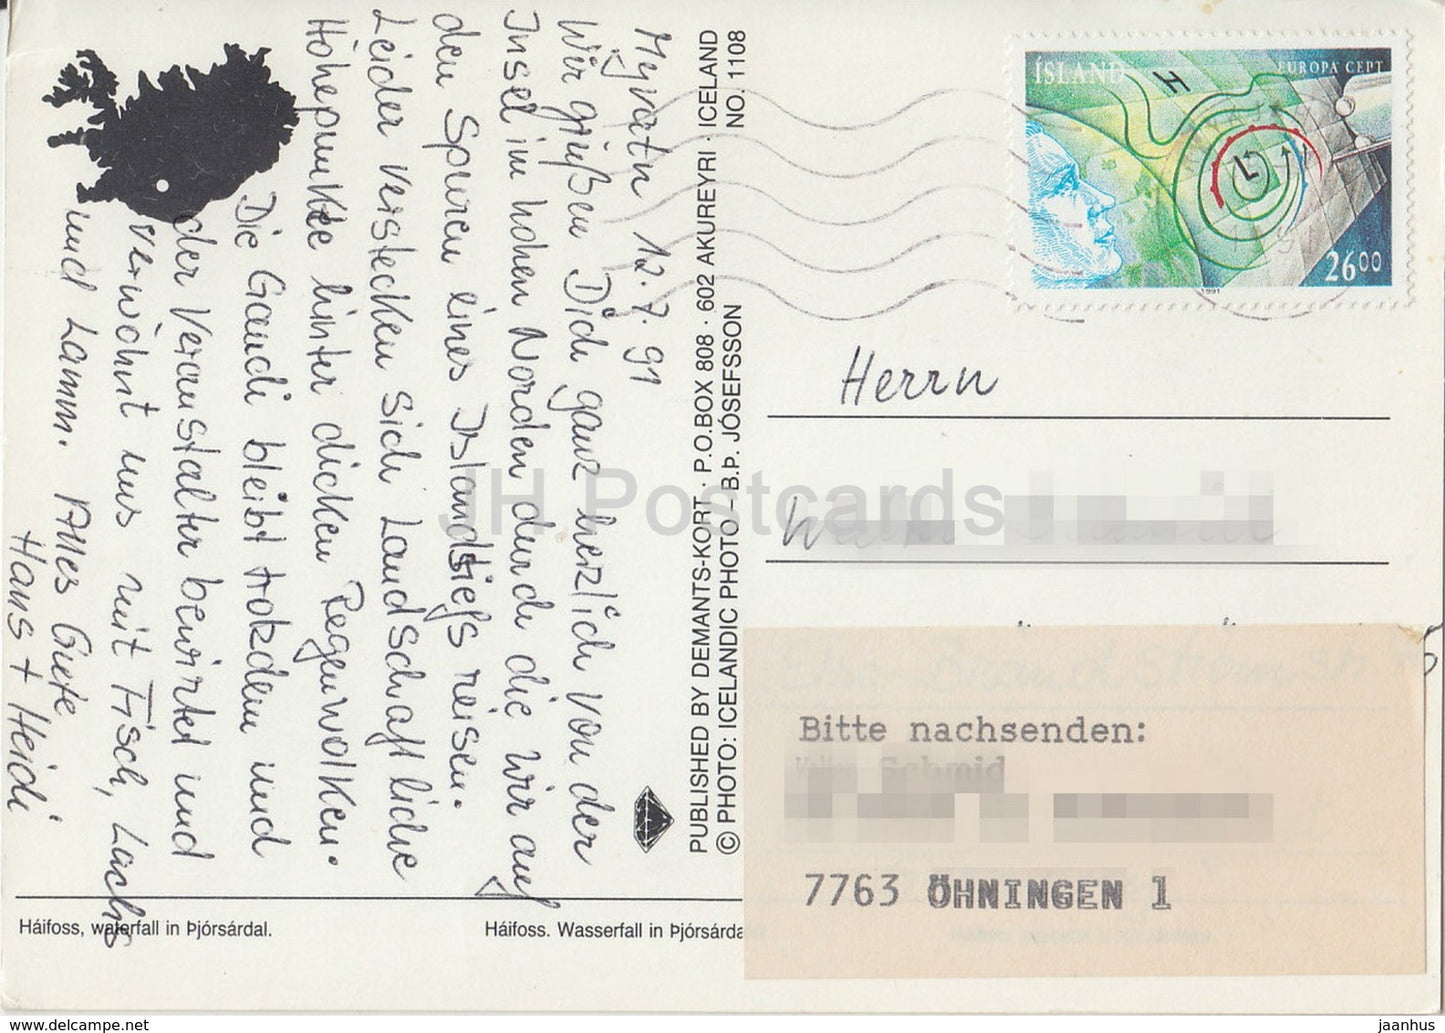 Myvatn 12.7.91
Wir grüßen Dich ganz herzlich von der
Insel im hohen Norden durch die wir auf
den Spuren eines Islandtiefs reisen.
Leider verstecken sich Landschaftliche
Höhepunkte hinter dicken Regenwolken.
Die Gaudi bleibt trotzdem und
der Veranstalter bewirtet und
verwöhnt uns mit Fisch, Lachs
und Lamm. Alles Gute
Hans + Heidi
PUBLISHED BY DEMANTS-KORT · P.O.BOX 808 · 602 AKUREYRI · ICELAND
© PHOTO: ICELANDIC PHOTO – B.Þ. JÓSEFSSON NO. 1108
Háifoss, waterfall in Þjórsárdal.
Háifoss. Wasserfall in Þjórsárda
ÍSLAND
EUROPA CEPT
H
L
2600
1991
Herrn
Bitte nachsenden:
Schmid
7763 ÖHNINGEN 1
JH Postcards
www.delcampe.net
jaanhus